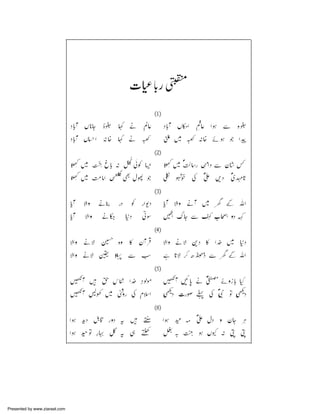 منقبتی رباعیات
(1)
سے ہوا عالم امکاں آباد نے کہا جلوۂ جاناں آباد
پیدا جو ہوئے خانہ کعبہ میں علی کعبہ نے کہا خانہ احساں آباد
(2)
کس شان سے دامن رسالت میں کھلا کوئی گل نہ باغ جنت میں کھلا
علی کی خوشبو نکلی جو پھول بھی گلشن امامت میں کھلا
(3)
اللہ کے گھر میں آنے والا آیا دیوار کو در بنانے والا آیا
کہہ دو اصحاب کہف سے جاگ اٹھیں سوئی دنیا جگانے والا آیا
(4)
دنیا میں خدا کا دین لانے والا قرآن کا وہ حسین لانے والا
اللہ کے گھر سے ڈھونڈھ کر لائے ہے سب سے پہلا یقین لانے والا
(5)
کیا بازوئے مصطفیٰ نے پائیں آنکھیں مولود خدا شناس حق بیں آنکھیں
دیکھی تو نبی کی پہلے صورت دیکھی اسلام کی روشنی میں کھولیں آنکھیں
(6)
ہر جان و دل علی مہ عید ہوا میں یہ دور قابل دید ہوا
پتی پتی نہ کیوں ہو جنت بہ بغل کھلتے ہی یہ گل بہار توحید ہوا
Presented by www.ziaraat.com